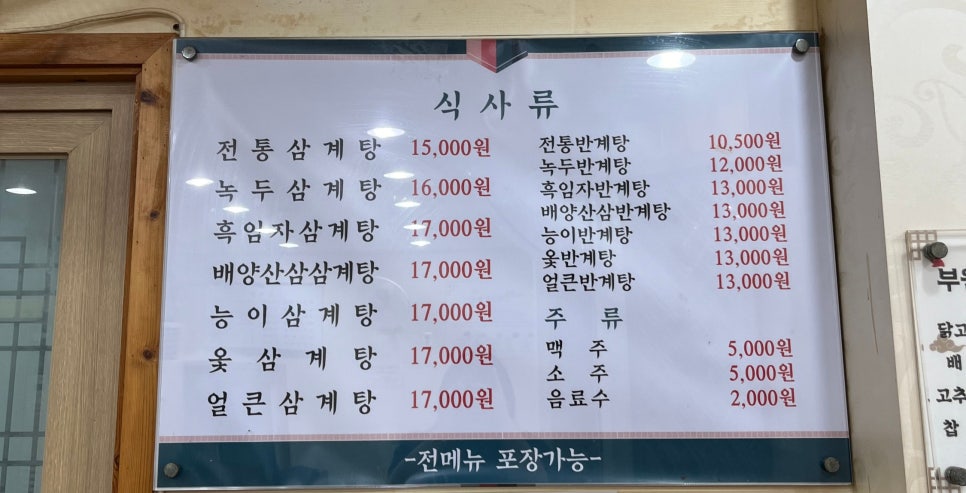 식사류
전통삼계탕 15,000원
녹두삼계탕 16,000원
흑임자삼계탕 17,000원
배양산삼삼계탕 17,000원
능이삼계탕 17,000원
옻삼계탕 17,000원
얼큰삼계탕 17,000원
전통반계탕 10,500원
녹두반계탕 12,000원
흑임자반계탕 13,000원
배양산삼반계탕 13,000원
능이반계탕 13,000원
옻반계탕 13,000원
얼큰반계탕 13,000원
주류
맥주 5,000원
소주 5,000원
음료수 2,000원
-전메뉴 포장가능-
배
고추
찹